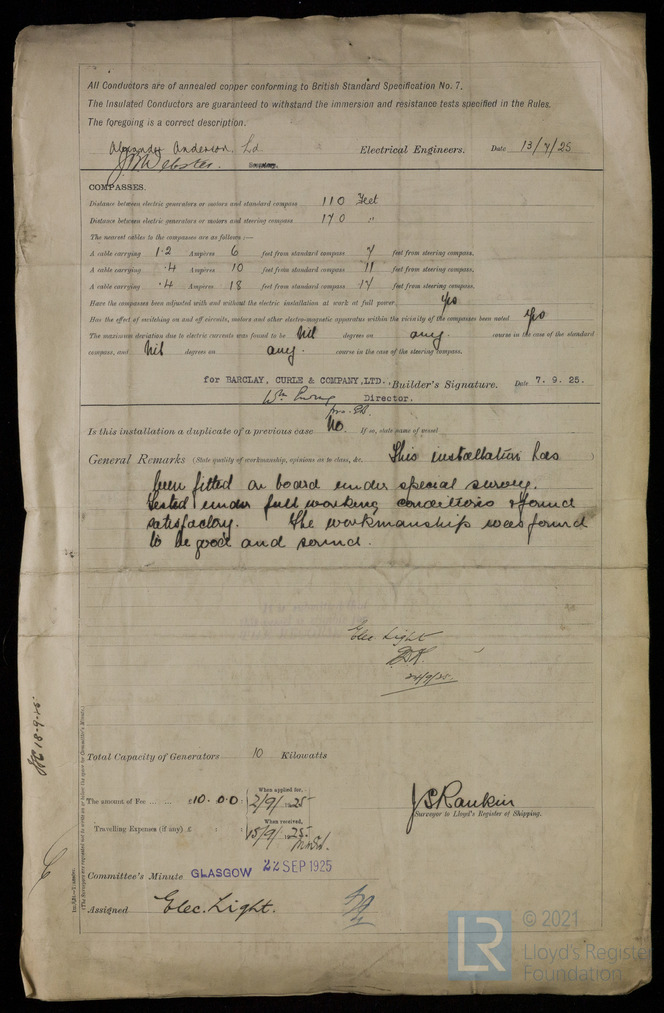 All Conductors are of annealed copper conforming to British Standard Specification No. 7.
The Insulated Conductors are guaranteed to withstand the immersion and resistance tests specified in the Rules.
The foregoing is a correct description.
Alexander Anderson. Ld Electrical Engineers. Date 13/7/25
J M Webster.
COMPASSES.
Distance between electric generators or motors and standard compass 110 Feet
Distance between electric generators or motors and steering compass 170 "
The nearest cables to the compasses are as follows :—
A cable carrying 1·2 Ampères 6 feet from standard compass 7 feet from steering compass.
A cable carrying ·4 Ampères 10 feet from standard compass 11 feet from steering compass.
A cable carrying ·4 Ampères 18 feet from standard compass 17 feet from steering compass.
Have the compasses been adjusted with and without the electric installation at work at full power yes
Has the effect of switching on and off circuits, motors and other electro-magnetic apparatus within the vicinity of the compasses been noted yes
The maximum deviation due to electric currents was found to be Nil degrees on any. course in the case of the standard
compass, and Nil degrees on any. course in the case of the steering compass.
for BARCLAY, CURLE & COMPANY, LTD., Builder's Signature. Date 7. 9. 25.
Director.
Is this installation a duplicate of a previous case No. If so, state name of vessel
General Remarks (State quality of workmanship, opinions as to class, &c. This installation has
been fitted on board under special survey.
Tested under full working conditions & found
satisfactory. The workmanship was found
to be good and sound.
Elec. Light
24/9/25.
JC 18-9-25
Total Capacity of Generators 10 Kilowatts
The amount of Fee ... £10.0.0 When applied for, 2/9/1925
Travelling Expenses (if any) £ When received, 15/9/1925.
J S Rankin
Surveyor to Lloyd's Register of Shipping.
Committee's Minute GLASGOW 22 SEP 1925
Assigned Elec. Light.
(The Surveyors are requested not to write on or below the space for Committee's Minute.)
© 2021
LR Lloyd's Register
Foundation